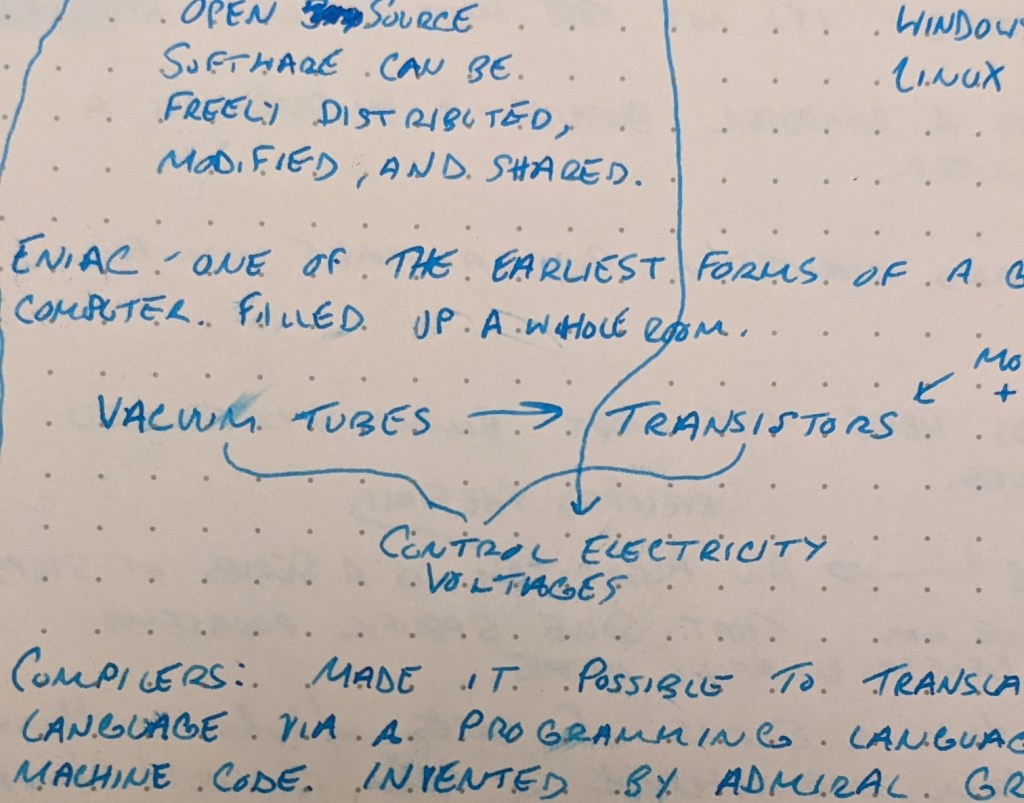 OPEN SOURCE
SOFTWARE CAN BE
FREELY DISTRIBUTED,
MODIFIED, AND SHARED.
WINDOW
LINUX
ENIAC - ONE OF THE EARLIEST FORMS OF A
COMPUTER. FILLED UP A WHOLE ROOM.
MO
+
VACUUM TUBES → TRANSISTORS
CONTROL ELECTRICITY
VOLTAGES
COMPILERS: MADE IT POSSIBLE TO TRANSLA
LANGUAGE VIA A PROGRAMMING LANGUAG
MACHINE CODE. INVENTED BY ADMIRAL GR